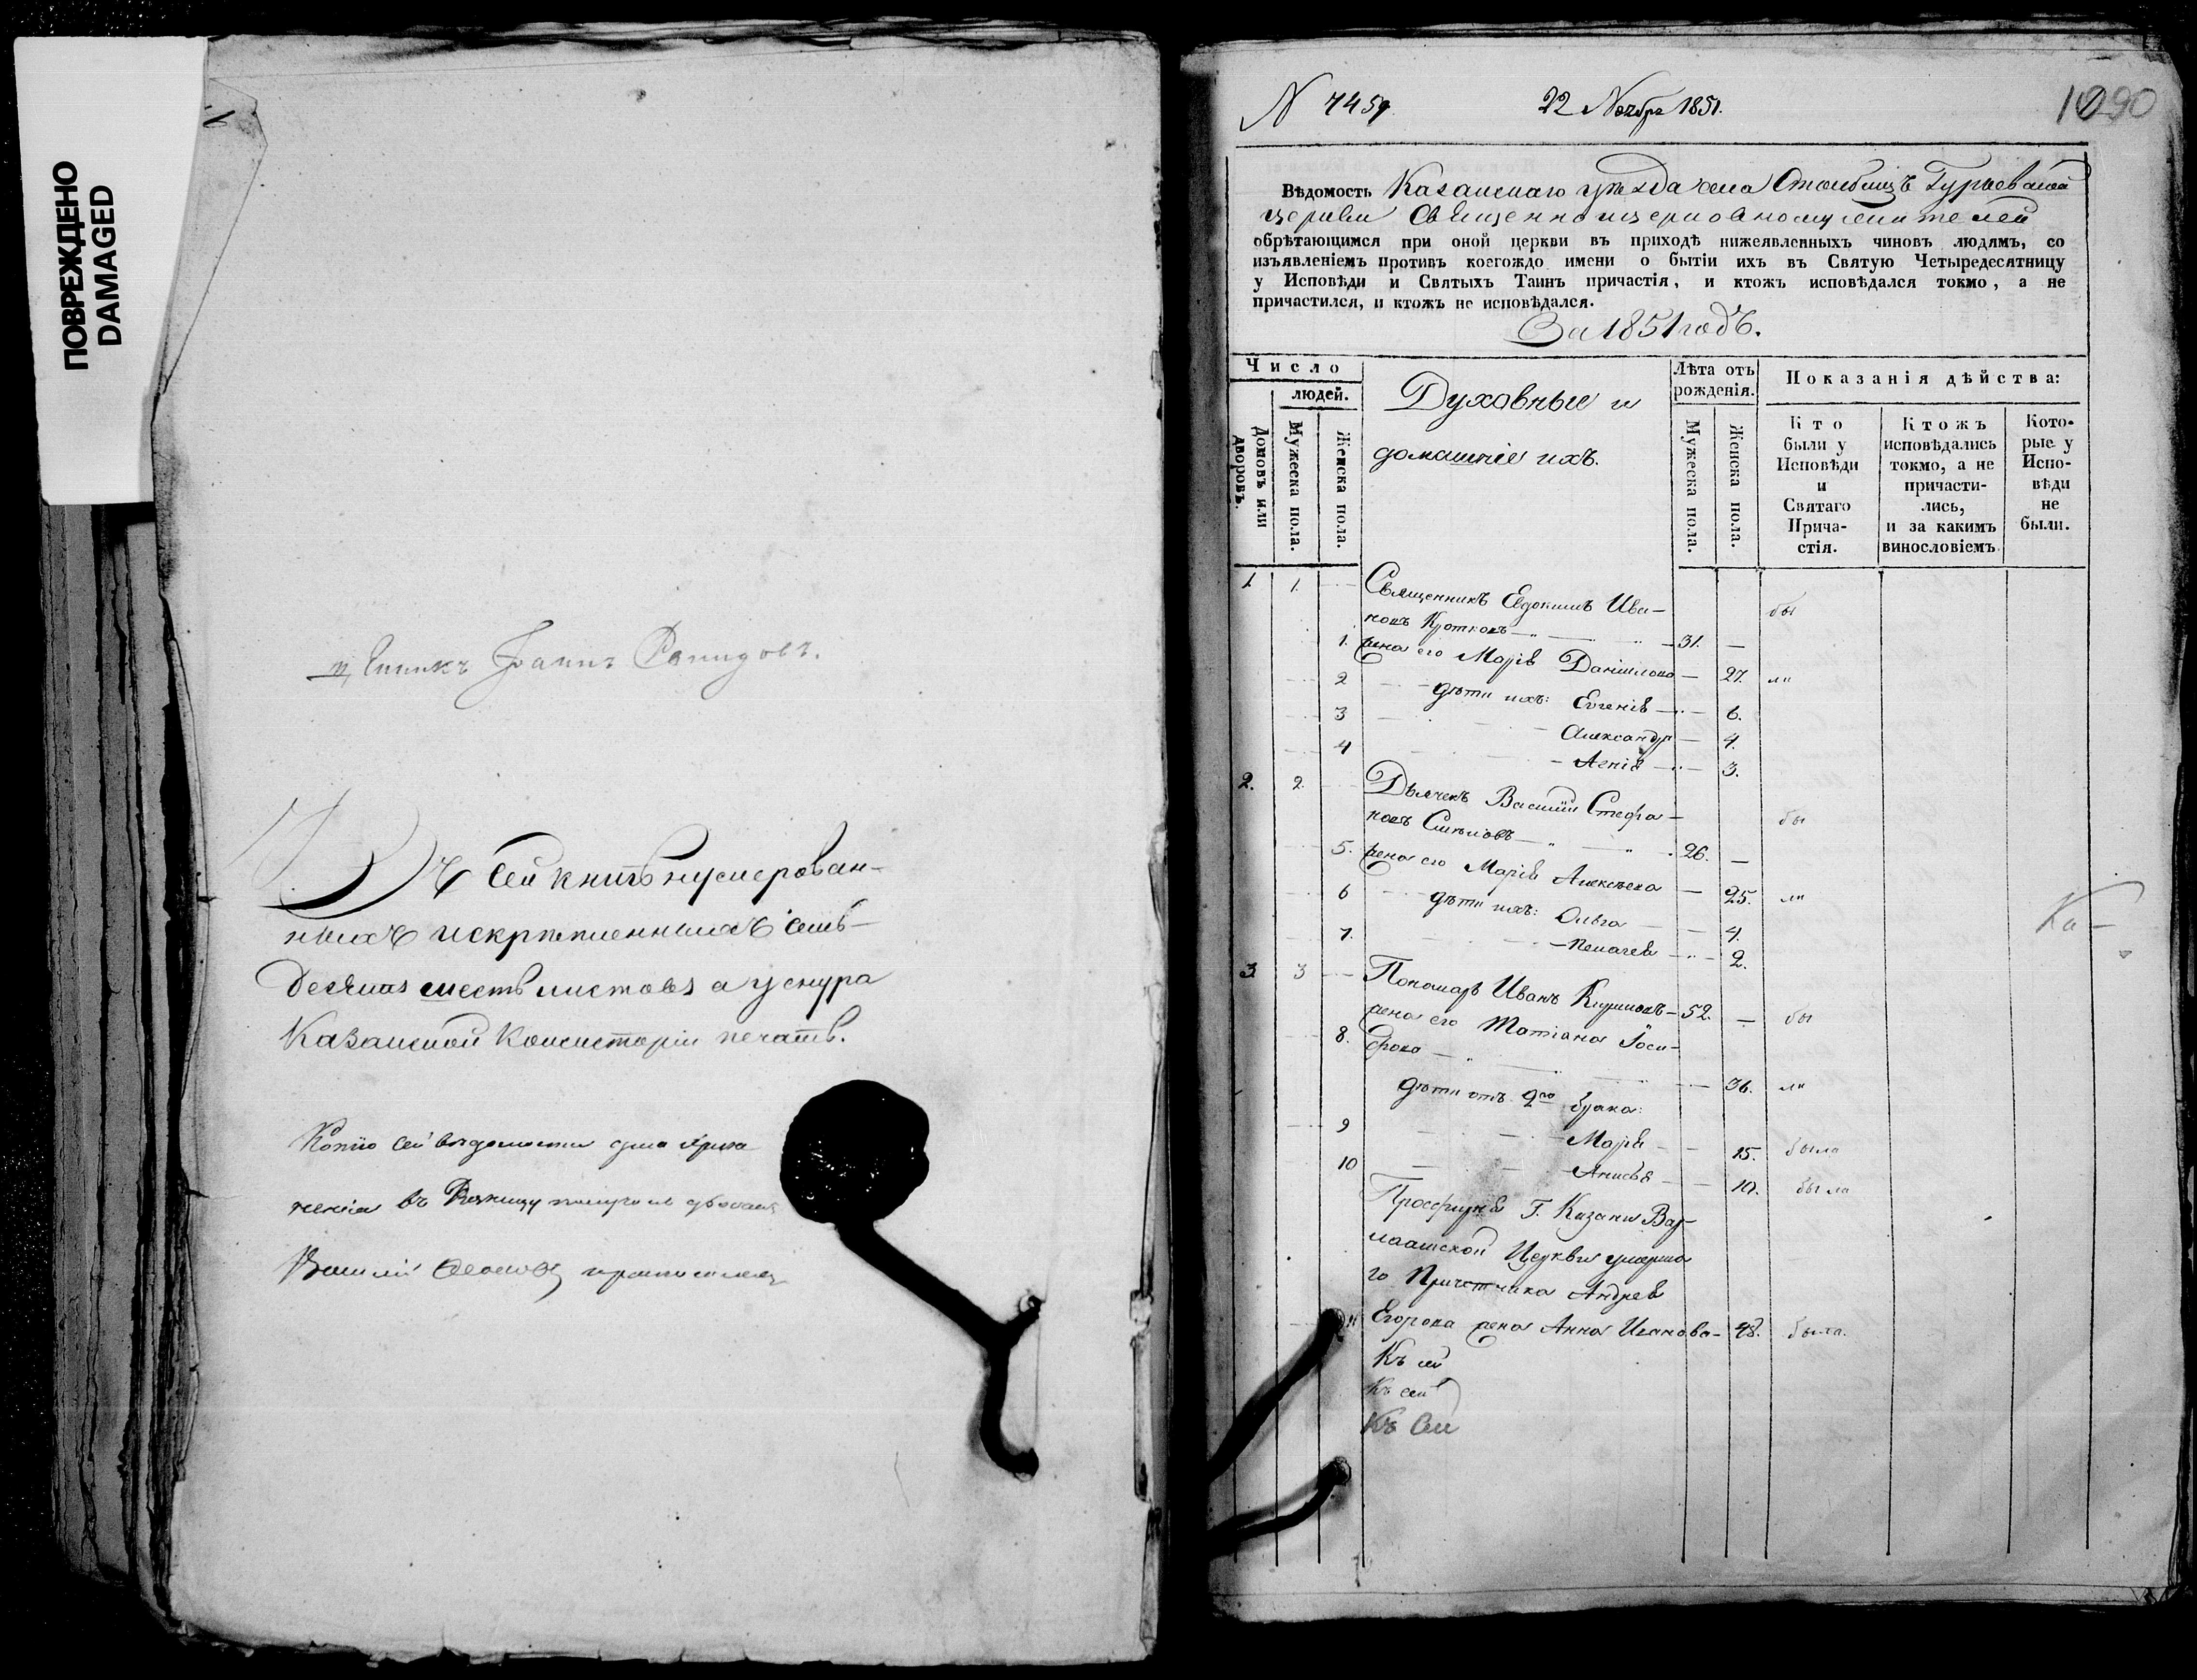 ПОВРЕЖДЕНО
DAMAGED
Іоаннъ
Въ сей книгѣ нумерован-
ныхъ и скрѣпленныхъ семь-
десятъ шесть листовъ а у снура
Казанской Консисторіи печать.
Копію сей вѣдомости для хране
нія въ получилъ
Василій
N 7459
22 Ноября 1851.
1090
Вѣдомость Казанскаго уѣзда села Столбищъ Гурьевской
церкви Священноцерковнослужителей
обрѣтающимся при оной церкви въ приходѣ нижеявленныхъ чиновъ людямъ, со
изъявленіемъ противъ коегождо имени о бытіи ихъ въ Святую Четыредесятницу
у Исповѣди и Святыхъ Таинъ причастія, и ктожъ исповѣдался токмо, а не
причастился, и ктожъ не исповѣдался.
За 1851 годъ.
Число
людей.
Домовъ или дворовъ.
Мужеска пола.
Женска пола.
Духовные и
домашніе ихъ.
Лѣта отъ
рожденія.
Мужеска пола.
Женска пола.
Показанія дѣйства:
Кто
были у
Исповѣди
и
Святаго
Прича-
стія.
Ктожъ
исповѣдались
токмо, а не
причасти-
лись,
и за какимъ
винословіемъ
Кото-
рые у
Испо-
вѣди
не
были.
1 1. Священникъ Евдокимъ Ива- бы
новъ Кротковъ — 31. —
1. жена его Марія Даніилова — 27. ли
2 дѣти ихъ: Евгенія — 6.
3 Александра — 4.
4 — 3.
2. 2. Дьячекъ Василій Стефа- бы
новъ — 26. —
5. жена его Марія Алексѣева — 25. ли
6 дѣти ихъ: Ольга — 4.
7. Пелагея — 2.
3 3 Пономарь Иванъ — 52. — бы
8. жена его Татіана Іоси-
фова — 36. ли
дѣти отъ 2го брака:
9 Марія — 15. была
10 Анисья — 10. была
Просфирня Г. Казани Вар-
лаамской Церкви умерша
го Причетника Андрея
11 Егорова жена Анна Иванова — 48. была.
Къ сей
Къ сей
Къ сей
Ка-